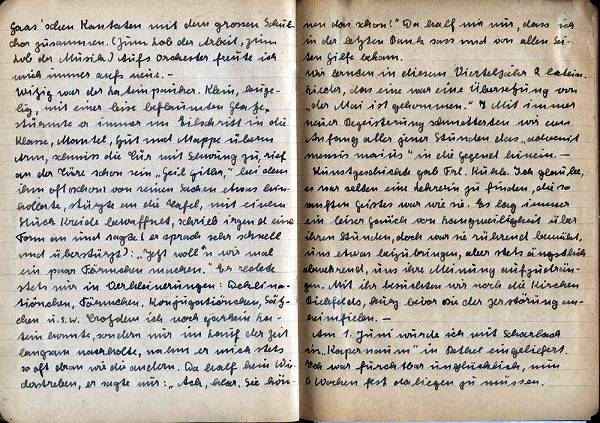 Haas'schen Kantaten mit dem grossen Schul-
chor zusammen. (Zum Lob der Arbeit, zum
Lob der Musik.) Aufs Orchester freute ich
mich immer aufs neue. –
Witzig war der Lateinpauker. Klein, kuge-
lig, mit einer leise beflaumten Glatze,
stürmte er immer im Eilschritt in die
Klasse, Mantel, Hut und Mappe überm
Arm, schmiss die Tür mit Schwung zu, rief
an der Türe schon sein „Heil Hitler", bei dem
ihm oft schon von seinen Sachen etwas hin-
kollerte, stürzte an die Tafel, mit einem
Stück Kreide bewaffnet, schrieb irgend eine
Form an und sagte (er sprach sehr schnell
und überstürzt): „Jetzt woll'n wir mal
ein paar Förmchen machen." Er redete
stets nur in Verkleinerungen: Deklina-
tiönchen, Förmchen, Konjugatiönchen, Sätz-
chen u.s.w. Trotzdem ich noch garkein La-
tein konnte, sondern nur im Lauf der Zeit
langsam nachholte, nahm er mich stets
so oft dran wie die andern. Da half kein Wi-
derstreben, er sagte nur: „Ach, klar, Sie kön-
nen das schon!" Da half mir nur, dass ich
in der letzten Bank sass und von allen Sei-
ten Hilfe bekam.
Wir lernten in diesem Vierteljahr 2 latein.
Lieder, das eine war eine Übersetzung von
„der Mai ist gekommen." Mit immer
neuer Begeisterung schmetterten wir am
Anfang aller jener Stunden das „advenit
mensis maius" in die Gegend hinein. –
Kunstgeschichte gab Frl. Kuhle. Ich glaube,
es war selten eine Lehrerin zu finden, die so
sanften Geistes war wie sie. Es lag immer
ein leiser Geruch von Langweiligkeit über
ihren Stunden, doch war sie rührend bemüht,
uns etwas beizubringen, aber stets ängstlich
abwehrend, uns ihre Meinung aufzudrän-
gen. Mit ihr besuchten wir noch die Kirchen
Bielefelds, kurz bevor sie der Zerstörung an-
heimfielen. –
Am 1. Juni wurde ich mit Scharlach
in „Kapernaum" in Bethel eingeliefert.
Ich war furchtbar unglücklich, nun
6 Wochen fest daliegen zu müssen.